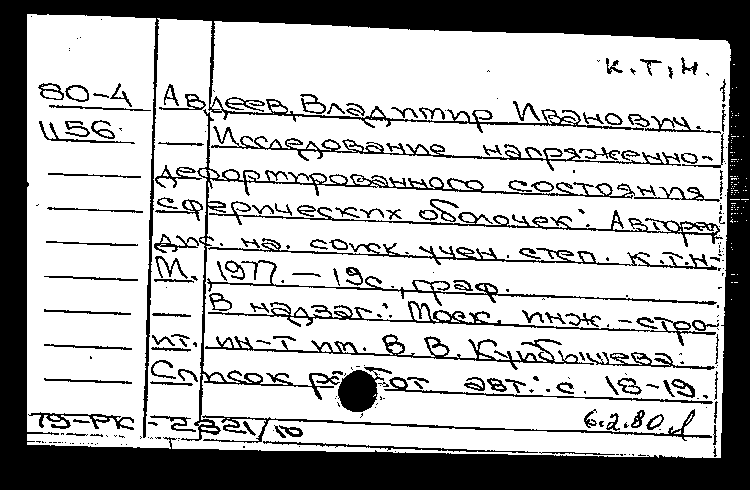 К.Т.Н.
80-4 Авдеев, Владимир Иванович.
1156 Исследование напряженно-
деформированного состояния
сферических оболочек: Автореф
дис. на. соиск. учен. степ. к.т.н-
М., 1977. - 19с., граф.
В надзаг.: Моск. инж.-стро-
ит. ин-т им. В. В. Куйбышева.
Список работ авт.: с. 18-19.
79-РК - 2321/10 6.2.80